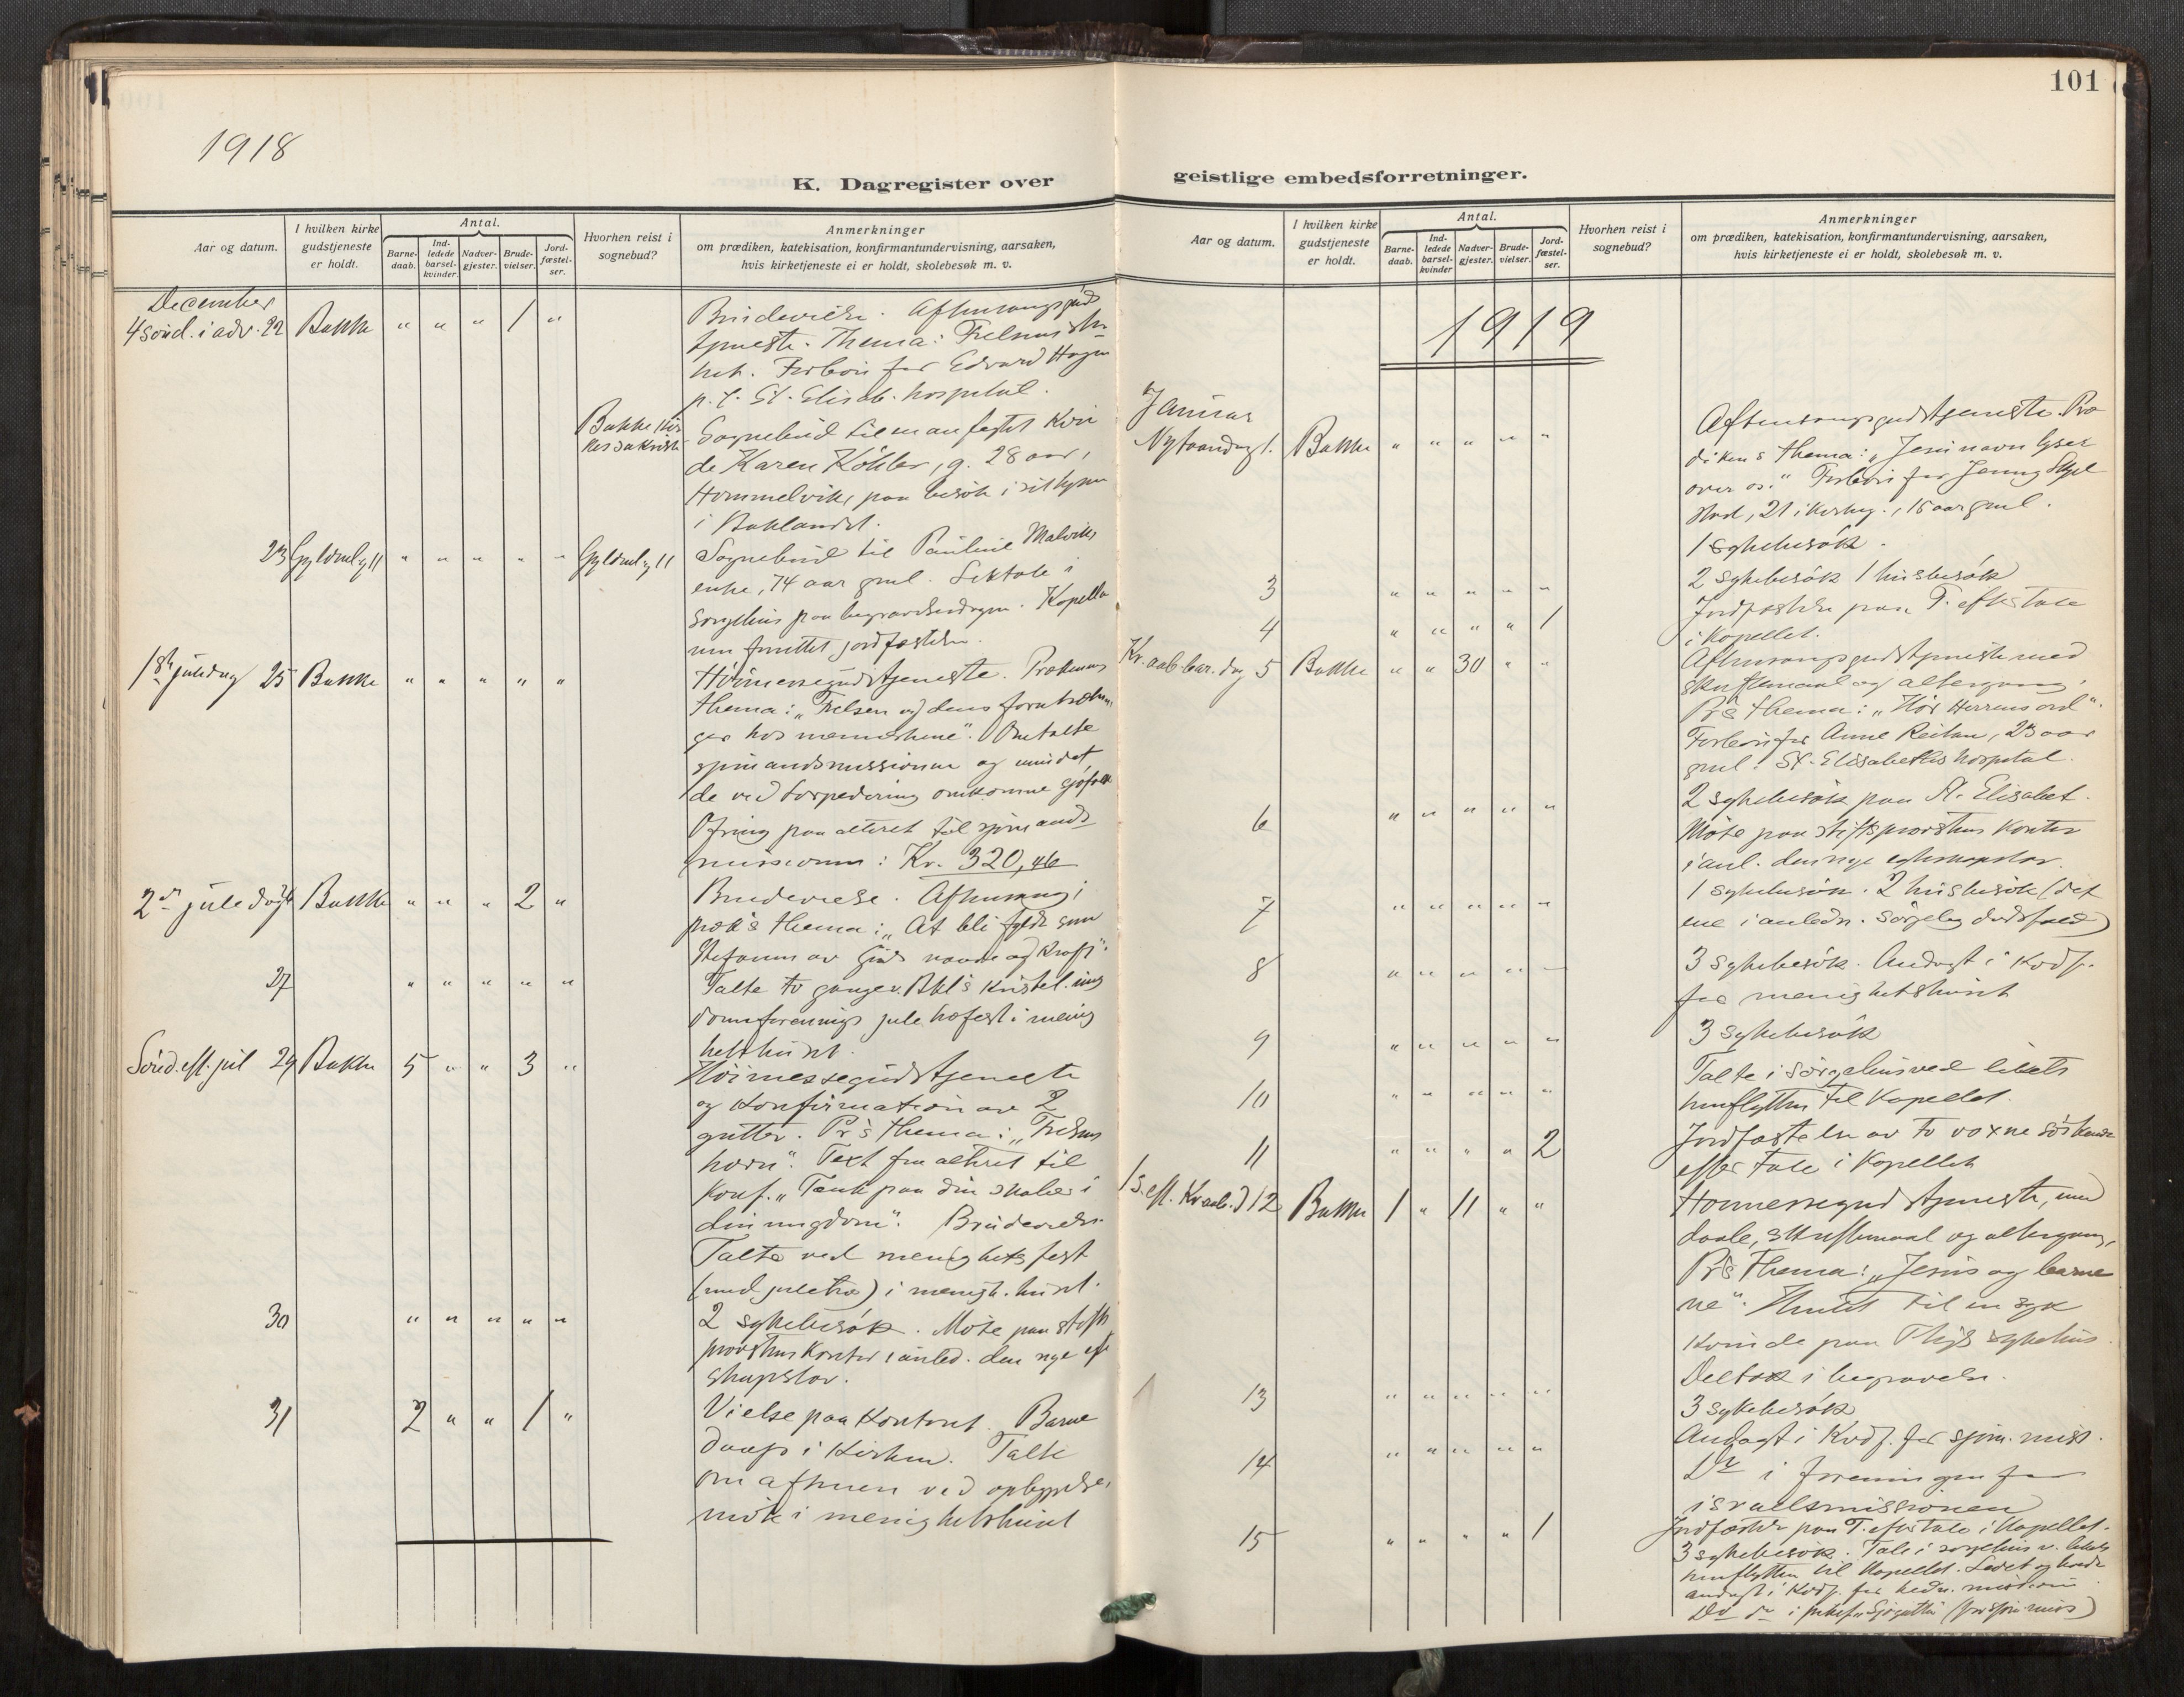 1918
K. Dagregister over
Aar og datum.
I hvilken kirke
gudstjeneste
er holdt.
Antal.
Barne-
daab.
Ind-
ledede
barsel-
kvinder.
Nadver-
gjester.
Brude-
vielser.
Jord-
fæstel-
ser.
Hvorhen reist i
sognebud?
Anmerkninger
om prædiken, katekisation, konfirmantundervisning, aarsaken,
hvis kirketjeneste ei er holdt, skolebesøk m. v.
December
4 sønd. i adv. 22 Bakke " " " 1 "
Brudevielse. Aftensangsguds
tjeneste. Thema: Frelsens
Forbøn for Edvard Hagen
p. t. St. Elisab. hospital.
Bakke kir
kes sakristi
Sognebud til en anfegtet kvin
de Karen Köhler, g. 28 aar,
Hommelvik, paa besøk i sit hjem
i Baklandet.
23 Gyldenl.g 11 " " " " " Gyldenl.g 11
Sognebud til Pauline Malvik,
enke, 74 aar gml.
sørgehus paa begravelsesdagen. Kapella
nen forrettet jordfæstelsen.
1ste juledag 25 Bakke " " " " "
Høimessegudstjeneste. Prækenens
thema: "Frelsen og dens forutsætnin,
ger hos menneskene". Omtalte
sjømandsmissionen og mindet
de ved torpedering omkomne sjøfolk
Ofring paa alteret til sjømands
missionen: Kr. 320,46
2den juledag Bakke " " " 2 "
Brudevielse. Aftensang;
præk's thema: "At bli fyldt som
Stefanus av Guds naade og kraft".
27 " " " " "
Talte to ganger v. Bkl's kristel. ung
domsforenings juletræfest i menig
hetshuset.
Sønd. eft. jul 29 Bakke 5 " " 3 "
Høimessegudstjeneste
og konfirmation av 2
gutter. Pr's thema: "Frelsens
horn". Text fra alteret til
konf. "Tænk paa din skaber i
din ungdom". Brudevielse.
Talte ved menighetsfest
(med juletræ) i menigh. huset.
30 " " " " "
2 sykebesøk. Møte paa stifts
provstens kontor i anled. den nye egte
skapslov.
31 2 " " 1 "
Vielse paa kontoret. Barne
daap i kirken. Talte
om aftenen ved opbyggelses
møte i menighetshuset
101
geistlige embedsforretninger.
Aar og datum.
I hvilken kirke
gudstjeneste
er holdt.
Antal.
Barne-
daab.
Ind-
ledede
barsel-
kvinder
Nadver-
gjester.
Brude-
vielser.
Jord-
fæstel-
ser.
Hvorhen reist i
sognebud?
Anmerkninger
om prædiken, katekisation, konfirmantundervisning, aarsaken,
hvis kirketjeneste ei er holdt, skolebesøk m. v.
1919
Januar
Nytaarsdag 1. Bakke " " " " "
Aftensangsgudstjeneste. Præ
dikens thema: "Jesu navn lyser
over os." Forbøn for Jenny Skjel
stad, 21 i Kirkeg., 15 aar gml.
1 sykebesøk.
3 " " " " "
2 sykebesøk 1 husbesøk
4 " " " " 1
Jordfæstelse paa T. efter tale
i kapellet.
Kr. aab.bar. dag 5 Bakke " " 30 " "
Aftensangsgudstjeneste med
skriftemaal og altergang.
Pr's thema: "Hør Herrens ord".
Forbøn for Anne Reitan, 23 aar
gml. St. Elisabeths hospital.
6 " " " " "
2 sykebesøk paa St. Elisabet.
Møte paa stiftsprovstens kontor
i anl. den nye egteskapslov.
7 " " " " "
1 sykebesøk. 2 husbesøk (det
ene i anledn. sørgelig dødsfald)
8 " " " " "
3 sykebesøk. Andagt i kvdf.
for menighetshuset
9 " " " " "
3 sykebesøk
10 " " " " "
Talte i sørgehus ved likets
henflytten til kapellet.
11 " " " " 2
Jordfæstelse av to voxne søskende
efter tale i kapellet
1 s. eft. Kr aab. d 12 Bakke 1 " 11 " "
Høimessegudstjeneste, med
daab, skriftemaal og altergang,
Pr's Thema: "Jesus og barne
ne". Hentet til en syk
kvinde paa Thjs sykehus.
Deltok i begravelse.
13 " " " " "
3 sykebesøk
Andagt i kvdf. for sjøm. miss.
14 " " " " "
Do i foreningen for
israelsmissionen
15 " " " " 1
Jordfæstelse paa T. efter tale i kapellet.
3 sykebesøk. Tale i sørgehus v. likets
henflytten til kapellet. Ledet og holdt
andagt i kvdf. for hedn. missionen
Do do i "Sjøgutten" (for sjøm miss)